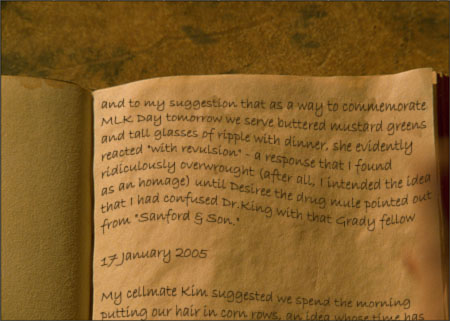 and to my suggestion that as a way to commemorate
MLK Day tomorrow we serve buttered mustard greens
and tall glasses of ripple with dinner, she evidently
reacted "with revulsion" - a response that I found
ridiculously overwrought (after all, I intended the idea
as an homage) until Desiree the drug mule pointed out
that I had confused Dr.King with that Grady fellow
from "Sanford & Son."
17 January 2005
My cellmate Kim suggested we spend the morning
putting our hair in corn rows, an idea whose time has